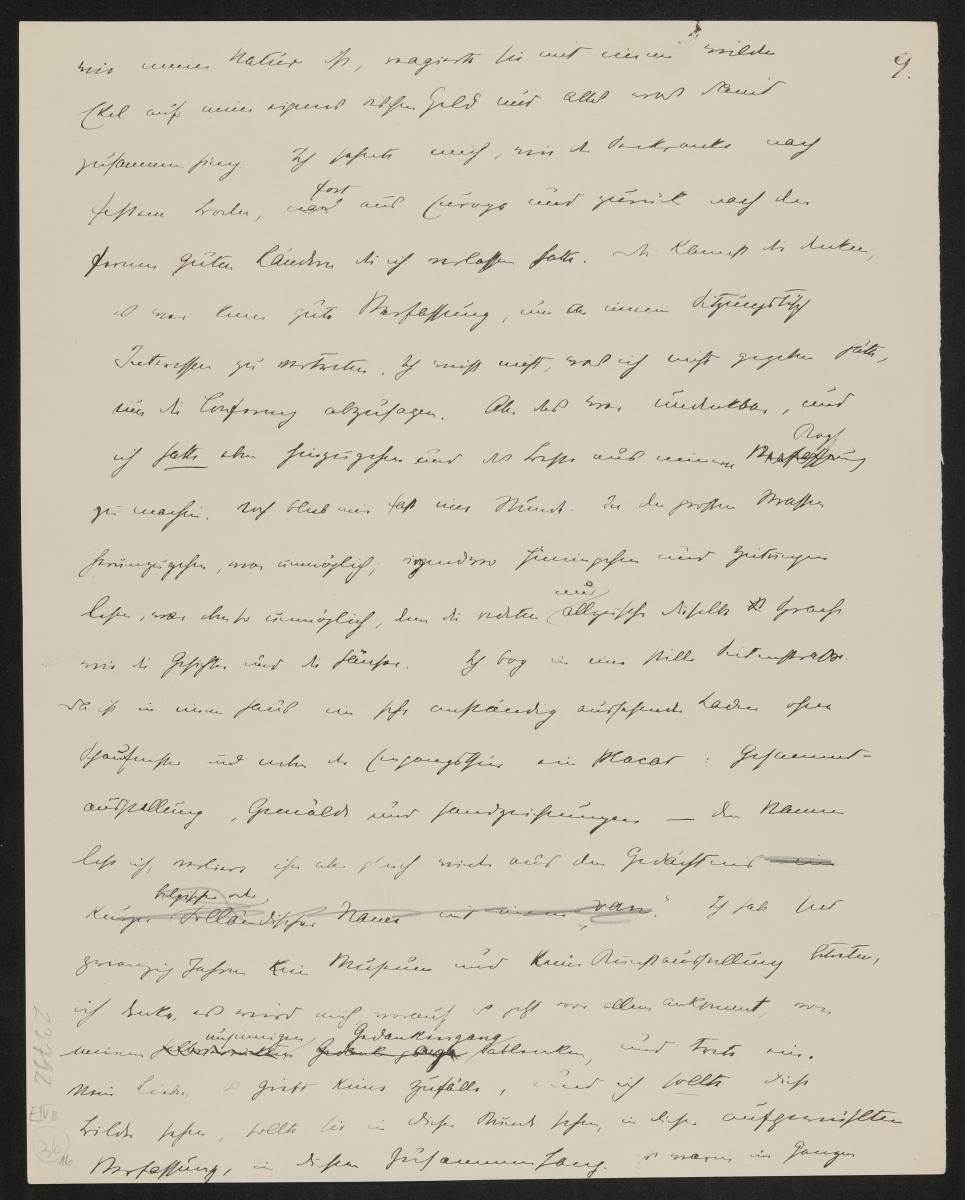 9.
wie meine Natur ist, reagierte sie mit einem wilden
Ekel auf mein eigenes bischen Geld und alles was damit
zusammenhing. Ich sehnte mich, wie der Seekranke nach
festem Boden, fort aus Europa und zurück nach den
fernen guten Ländern die ich verlassen hatte. Du kannst dir denken,
es war keine gute Verfassung, um an einem Sitzungstisch
Interessen zu vertreten. Ich weiss nicht, was ich nicht gegeben hätte,
um die Conferenz abzusagen. Aber das war undenkbar, und
ich hatte eben hinzugehen und das Beste aus meinem Verfassung Kopf
zu machen. Noch blieb mir fast eine Stunde. In den grossen Strassen
herumzugehen, war unmöglich; irgendwo hineingehen und Zeitungen
lesen, war ebenso unmöglich, denn die redeten nur allzusehr dieselbe Sprache
wie die Gesichter und die Häuser. Ich bog in eine stille Seitenstrasse.
Da ist in einem Haus ein sehr anständig aussehender Laden ohne
Schaufenster und neben der Eingangsthür ein Placat: Gesammt-
ausstellung, Gemälde und Handzeichnungen — den Namen
lese ich, verliere ihn aber gleich wieder aus dem Gedächtnis ein
kurzer belgischer oder holländischer Name mit einem „van“. Ich habe seit
zwanzig Jahren kein Museum und keine Kunstausstellung betreten,
ich denke, es wird mich worauf es jetzt vor allem ankommt, von
meinem unsinnigen Gedankengang ablenken, und trete ein.
Mein Lieber, es giebt keine Zufälle, und ich sollte diese
Bilder sehen, sollte sie in dieser Stunde sehen, in dieser aufgewühlten
Verfassung, in diesem Zusammenhang. Es waren im Ganzen
23792
E IV B
36
16